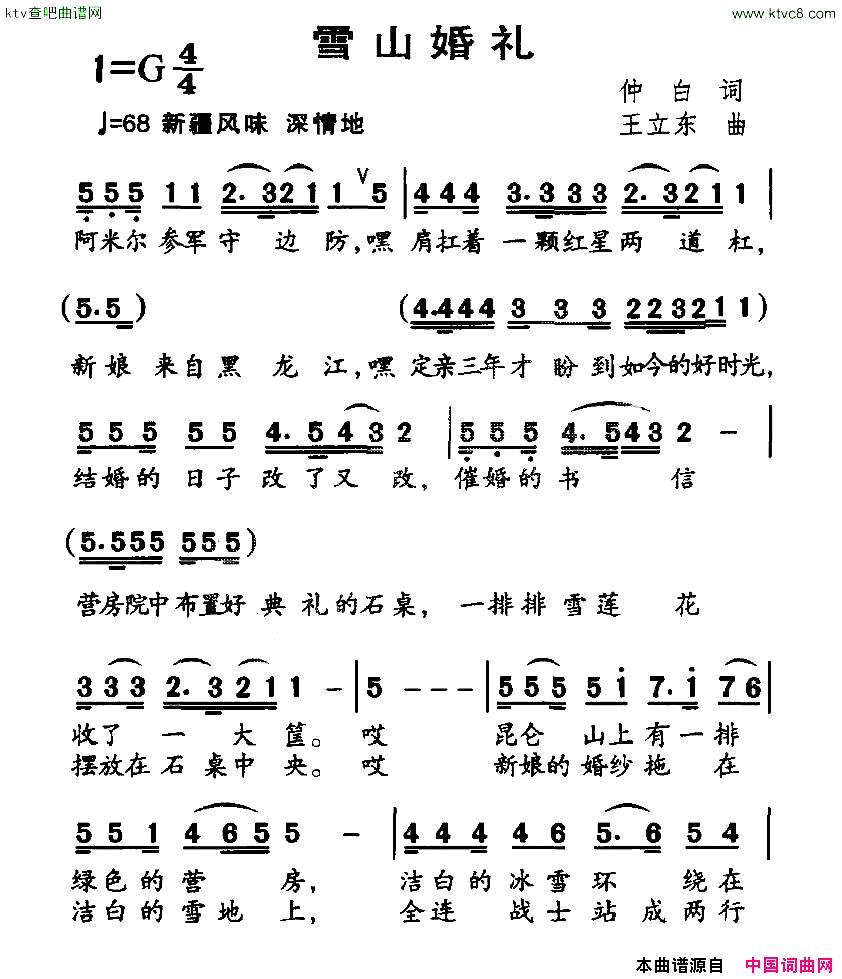 ktv查吧曲谱网
www.ktvc8.com
雪山婚礼
1=G 4/4
仲白 词
♩=68 新疆风味 深情地
王立东 曲
5 5 5 1 1 2. 3 2 1 1 V 5 | 4 4 4 3. 3 3 3 2. 3 2 1 1 |
阿米尔参军守 边 防,嘿 肩扛着 一颗红星两 道 杠,
(5. 5) (4. 4 4 4 3 3 3 2 2 3 2 1 1)
新娘 来自黑 龙 江,嘿 定亲三年才 盼到如今的好时光,
5 5 5 5 5 4. 5 4 3 2 | 5 5 5 4. 5 4 3 2 - |
结婚的 日子 改了又 改, 催婚的书 信
(5. 5 5 5 5 5 5)
营房院中布置好 典礼的石桌, 一排排雪莲 花
3 3 3 2. 3 2 1 1 - | 5 - - - | 5 5 5 5 1 7. 1 7 6 |
收了 一 大 筐。 哎 昆仑 山上有一排
摆放在石桌中 央。 哎 新娘的婚纱拖 在
5 5 1 4 6 5 5 - | 4 4 4 4 6 5. 6 5 4 |
绿色的营 房, 洁白的冰雪环 绕在
洁白的雪地 上, 全连 战士站成两行
本曲谱源自 中国词曲网